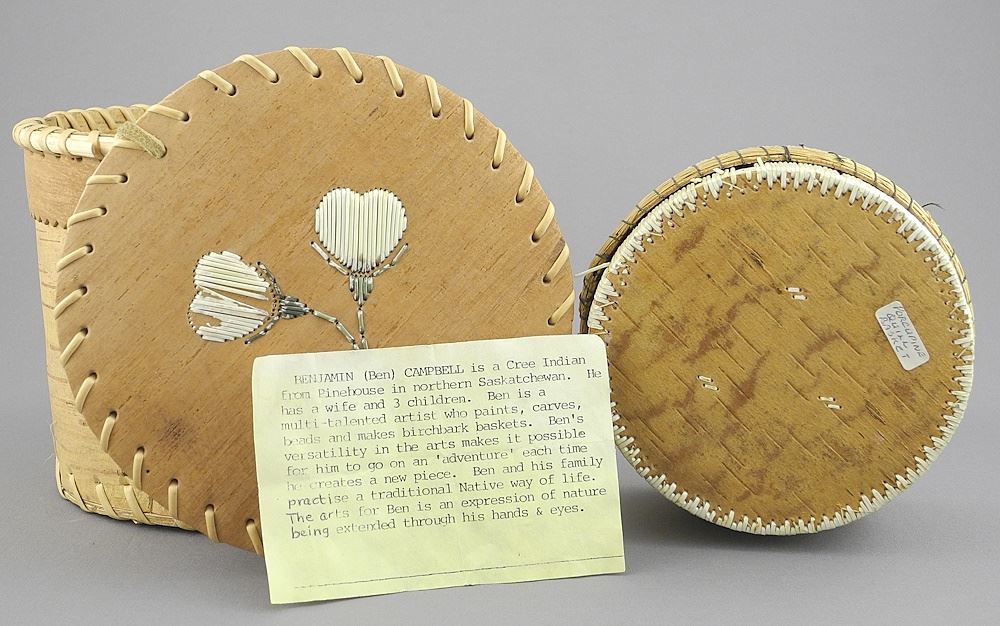 BENJAMIN (Ben) CAMPBELL is a Cree Indian
from Pinehouse in northern Saskatchewan. He
has a wife and 3 children. Ben is a
multi-talented artist who paints, carves,
beads and makes birchbark baskets. Ben's
versatility in the arts makes it possible
for him to go on an 'adventure' each time
he creates a new piece. Ben and his family
practise a traditional Native way of life.
The arts for Ben is an expression of nature
being extended through his hands & eyes.
PORCUPINE
QUILL
BASKET